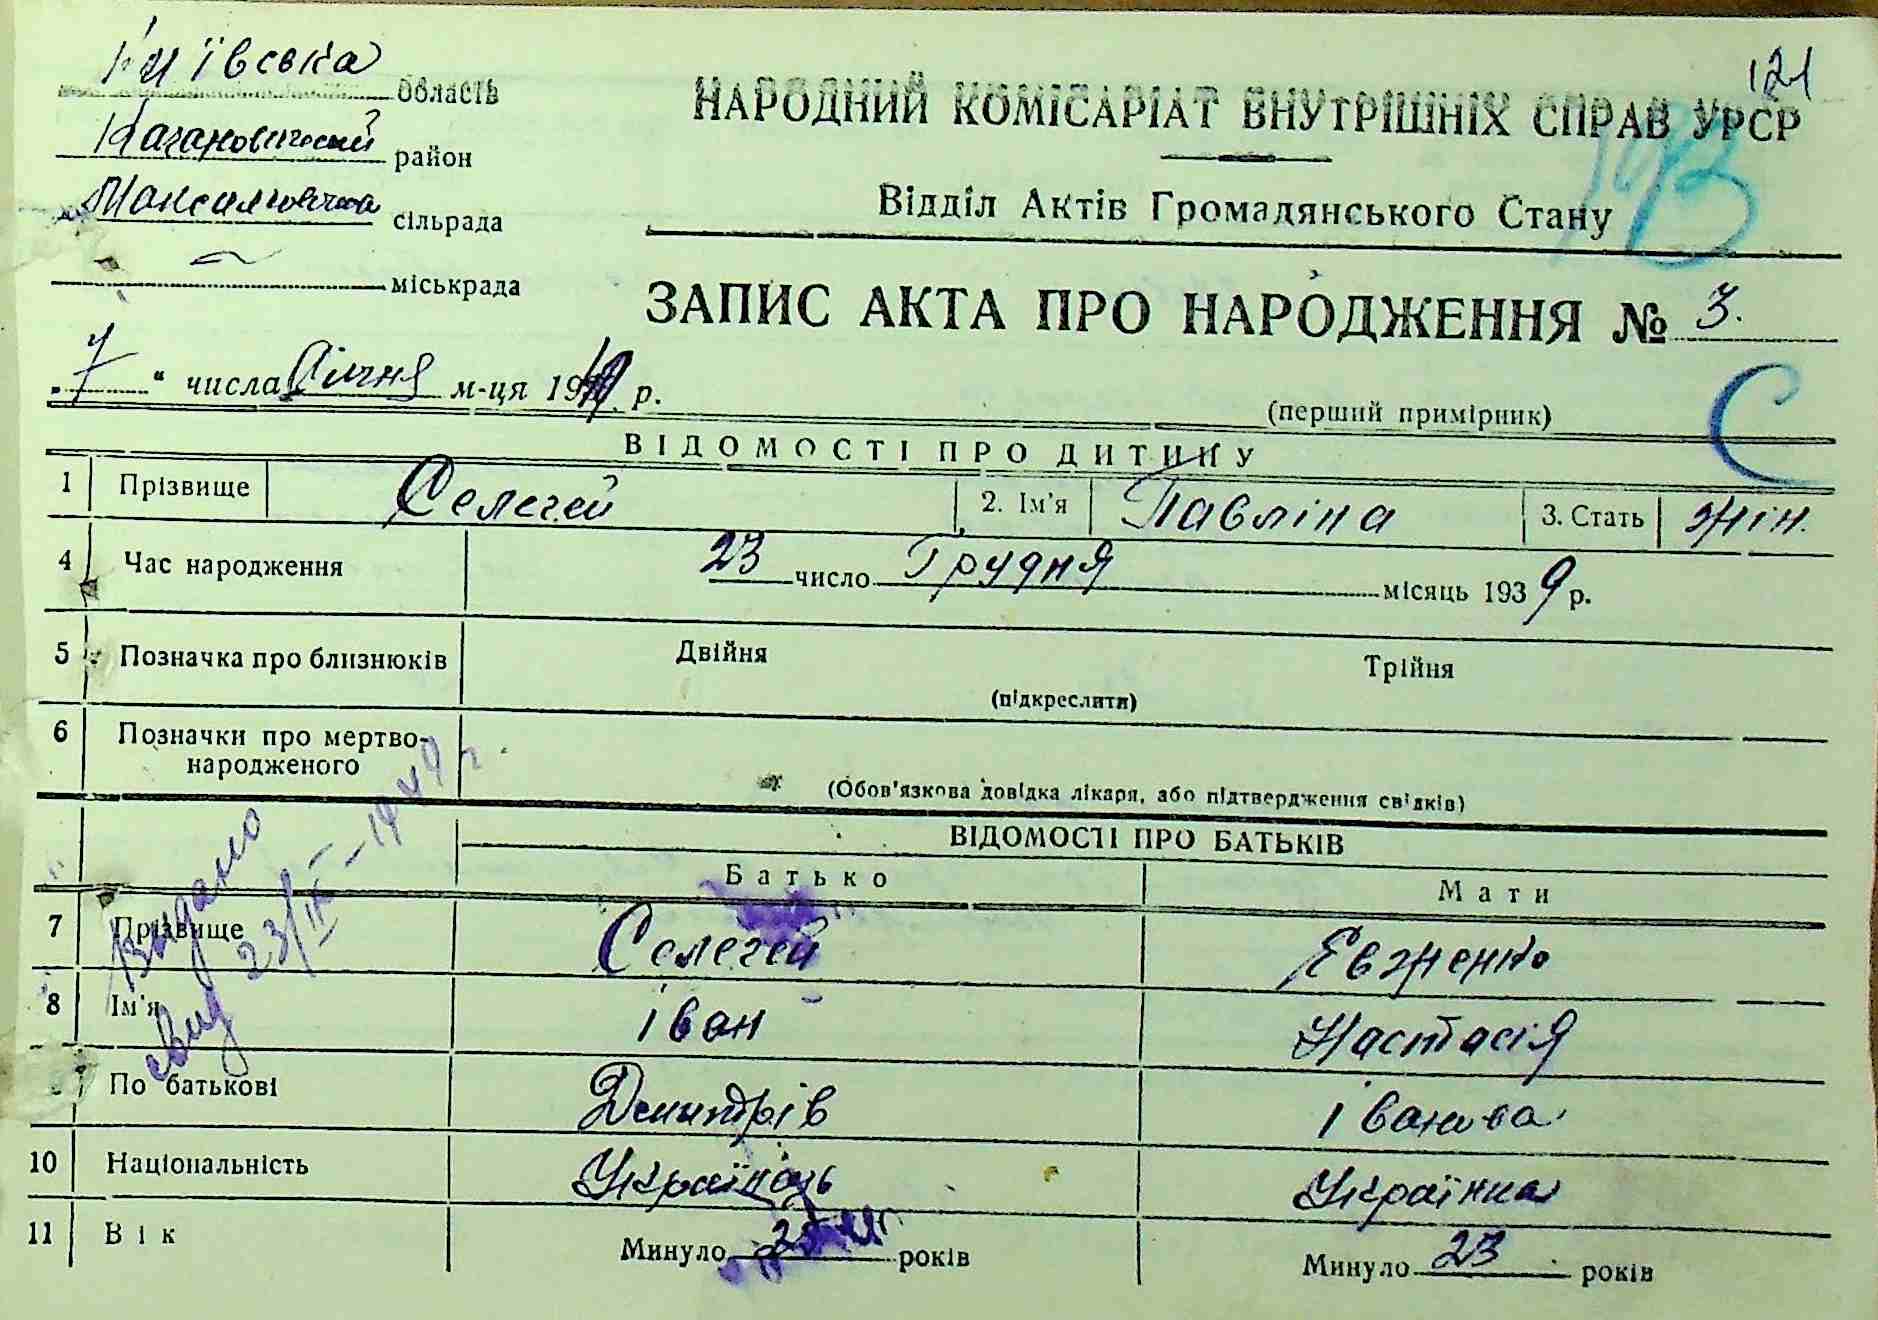 Київська область
Кагановичский район
Максимовичска сільрада
міськрада
121
НАРОДНИЙ КОМІСАРІАТ ВНУТРІШНІХ СПРАВ УРСР
Відділ Актів Громадянського Стану
ЗАПИС АКТА ПРО НАРОДЖЕННЯ № 3.
„7“ числа Січня м-ця 1940 р.
(перший примірник)
С
ВІДОМОСТІ ПРО ДИТИНУ
1 Прізвище Селегей 2. Ім'я Павліна 3. Стать жін.
4 Час народження 23 число Грудня місяць 1939 р.
5 Позначка про близнюків Двійня Трійня
(підкреслити)
6 Позначки про мертво-
народженого
(Обов'язкова довідка лікаря, або підтвердження свідків)
Видано
свид 23/IX-1949 г
ВІДОМОСТІ ПРО БАТЬКІВ
Батько Мати
7 Прізвище Селегей Євженко
8 Ім'я Іван Настасія
9 По батькові Дмитрів Іванова
10 Національність Українець Українка
11 Вік Минуло 25 років Минуло 23 років